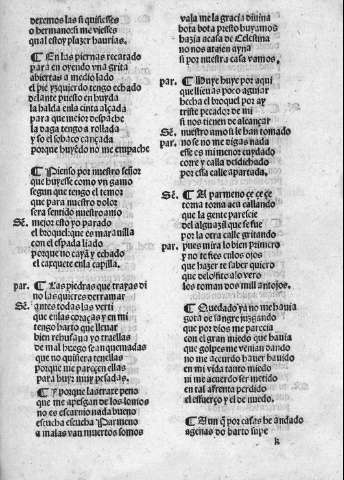 deremos las si quisiesses
o hermano si me viesses
qual estoy plazer haurias.
¶ En las piernas recatado
para en oyendo vna grita
abiertas a medio lado
el pie yzquierdo tengo echado
delante puesto en huyda
la halda en la cinta alçada
para que mejor despache
la daga tengo a rollada
y so el sobaco cançada
porque huyẽdo no me empache
¶ Pienso por nuestro señor
que huyesse como vn gamo
segun que tengo el temor
que para nuestro dolor
sera sentido nuestro amo
Sẽ. mejor esto yo parado
el broquel que es marauilla
con el espada liado
porque no caya y echado
el caxquete en la capilla.
par. ¶ Las piedras que trayas di
no las quieres derramar
Sẽ. antes todas las verti
que en las coraças y en mi
tengo harto que lleuar
bien rehusaua yo traellas
de mal huego sean quemadas
que no quisiera tenellas
porque me parecen ellas
para huyr muy pesadas.
¶ Y porque las trare peno
que me apesgan de los lomos
no es escarnio nada bueno
escucha escucha Parmeno
a malas van muertos somos
vala me la gracia diuina
bota bota presto huyamos
hazia acasa de Celestina
no nos atajen ayna
si por nuestra casa vamos.
par. ¶ Huye huye por aqui
que lleuas poco aguiar
hecha el broquel por ay
triste pecador de mi
si nos tienen de alcançar
Sẽ. nuestro amo si le han tomado
par. no se no me digas nada
esse es mi menor cuydado
corre y calla desdichado
por esta calle apartada.
Sẽ. ¶ Ha parmeno ce ce ce
torna torna aca callando
que la gente paresce
del alguazil que se fue
por la otra calle gritando
par. pues mira lo bien primero
y no te fies en los ojos
que hazer te saber quiero
que de lo hito a lo vero
los toman dos mil antojos.
¶ Quedado ya no me hauia
gota de sangre juzgando
que por dios me parecia
con el gran miedo que hauia
que golpes me venian dando
no me acuerdo hauer hauido
en mi vida tanto miedo
ni me acuerdo ser metido
en tal afrenta perdido
el esfuerço y el de nuedo.
¶ Aun q̃ por casas he andado
agenas do harto supe
k